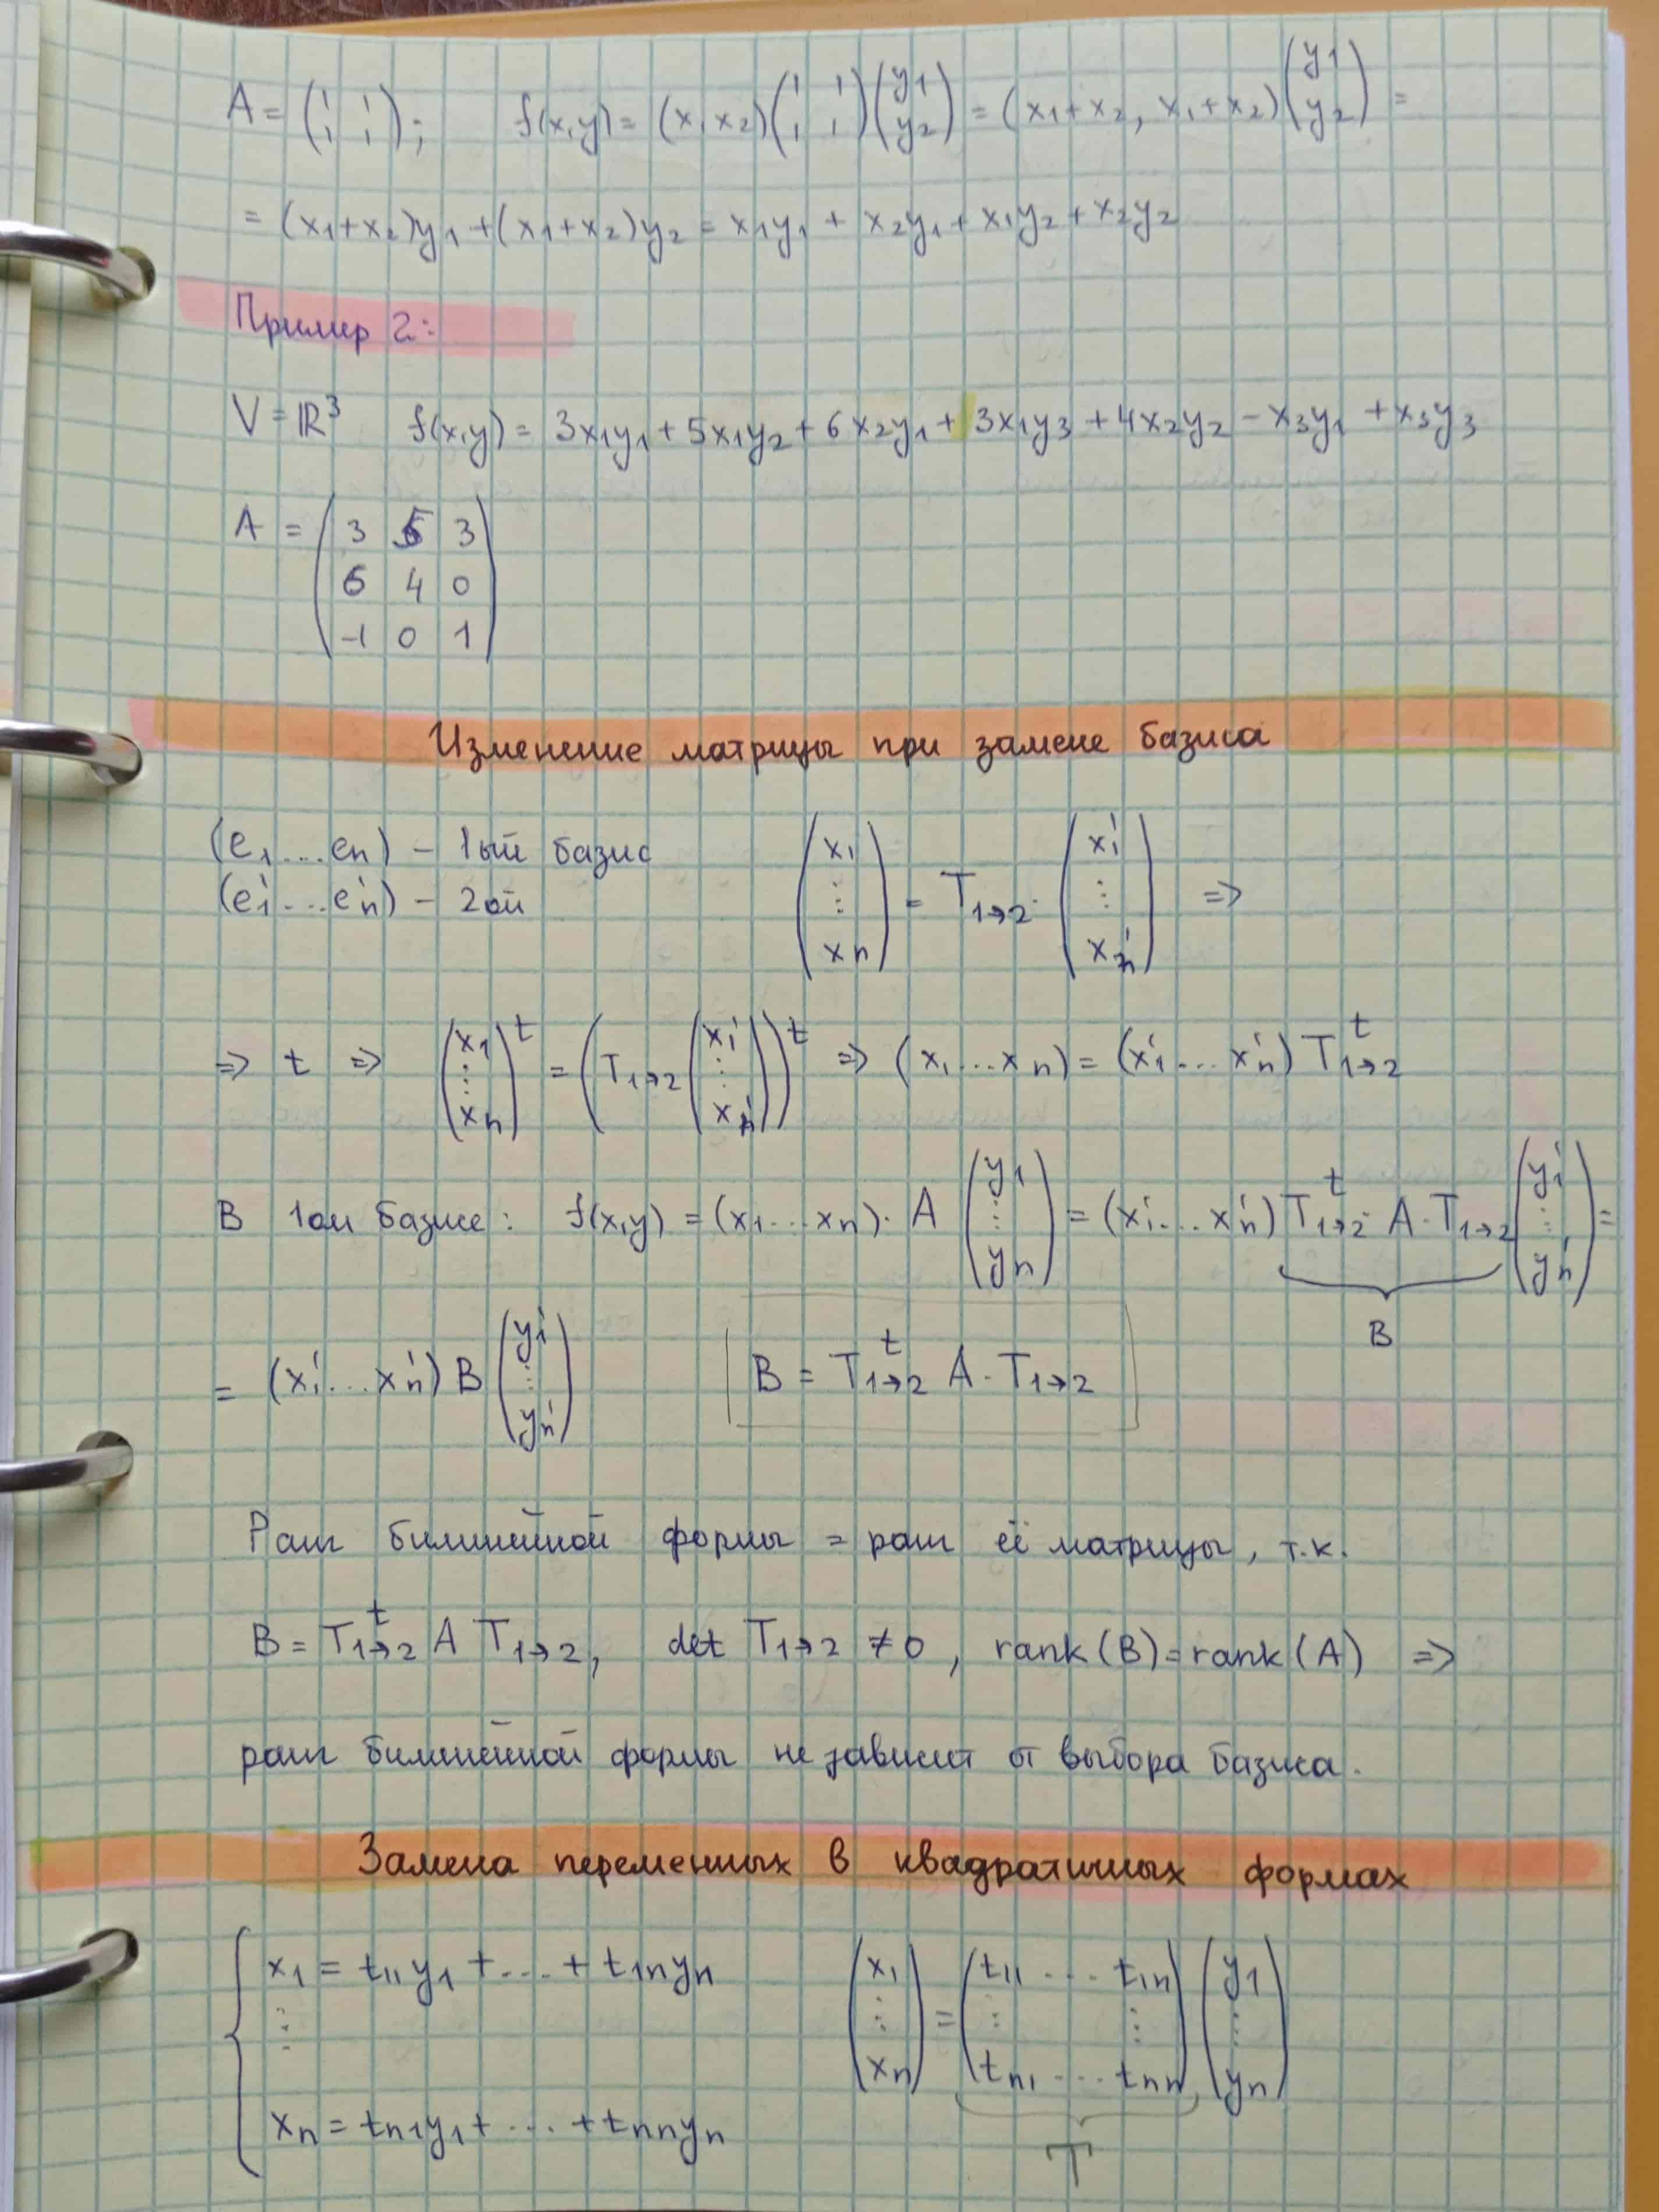 A = (1 1; 1 1); f(x,y) = (x₁ x₂)(1 1; 1 1)(y₁; y₂) = (x₁+x₂, x₁+x₂)(y₁; y₂) =
= (x₁+x₂)y₁ + (x₁+x₂)y₂ = x₁y₁ + x₂y₁ + x₁y₂ + x₂y₂
Пример 2:
V = ℝ³ f(x,y) = 3x₁y₁ + 5x₁y₂ + 6x₂y₁ + 3x₁y₃ + 4x₂y₂ - x₃y₁ + x₃y₃
A = (3 5 3; 6 4 0; -1 0 1)
Изменение матрицы при замене базиса
(e₁...eₙ) - 1ый базис
(e₁'...eₙ') - 2ой
(x₁; ⋮; xₙ) = T₁→₂ · (x₁'; ⋮; xₙ') =>
=> t => (x₁; ⋮; xₙ)ᵗ = (T₁→₂ (x₁'; ⋮; xₙ'))ᵗ => (x₁...xₙ) = (x₁'...xₙ') T₁→₂ᵗ
В 1ом базисе: f(x,y) = (x₁...xₙ) · A (y₁; ⋮; yₙ) = (x₁'...xₙ') T₁→₂ᵗ · A · T₁→₂ (y₁'; ⋮; yₙ') =
B
= (x₁'...xₙ') B (y₁'; ⋮; yₙ') B = T₁→₂ᵗ A · T₁→₂
Ранг билинейной формы = ранг её матрицы, т.к.
B = T₁→₂ᵗ A T₁→₂, det T₁→₂ ≠ 0, rank(B) = rank(A) =>
ранг билинейной формы не зависит от выбора базиса.
Замена переменных в квадратичных формах
{ x₁ = t₁₁y₁ + ... + t₁ₙyₙ
⋮
xₙ = tₙ₁y₁ + ... + tₙₙyₙ
(x₁; ⋮; xₙ) = (t₁₁ ... t₁ₙ; ⋮ ⋮; tₙ₁ ... tₙₙ) (y₁; ⋮; yₙ)
T